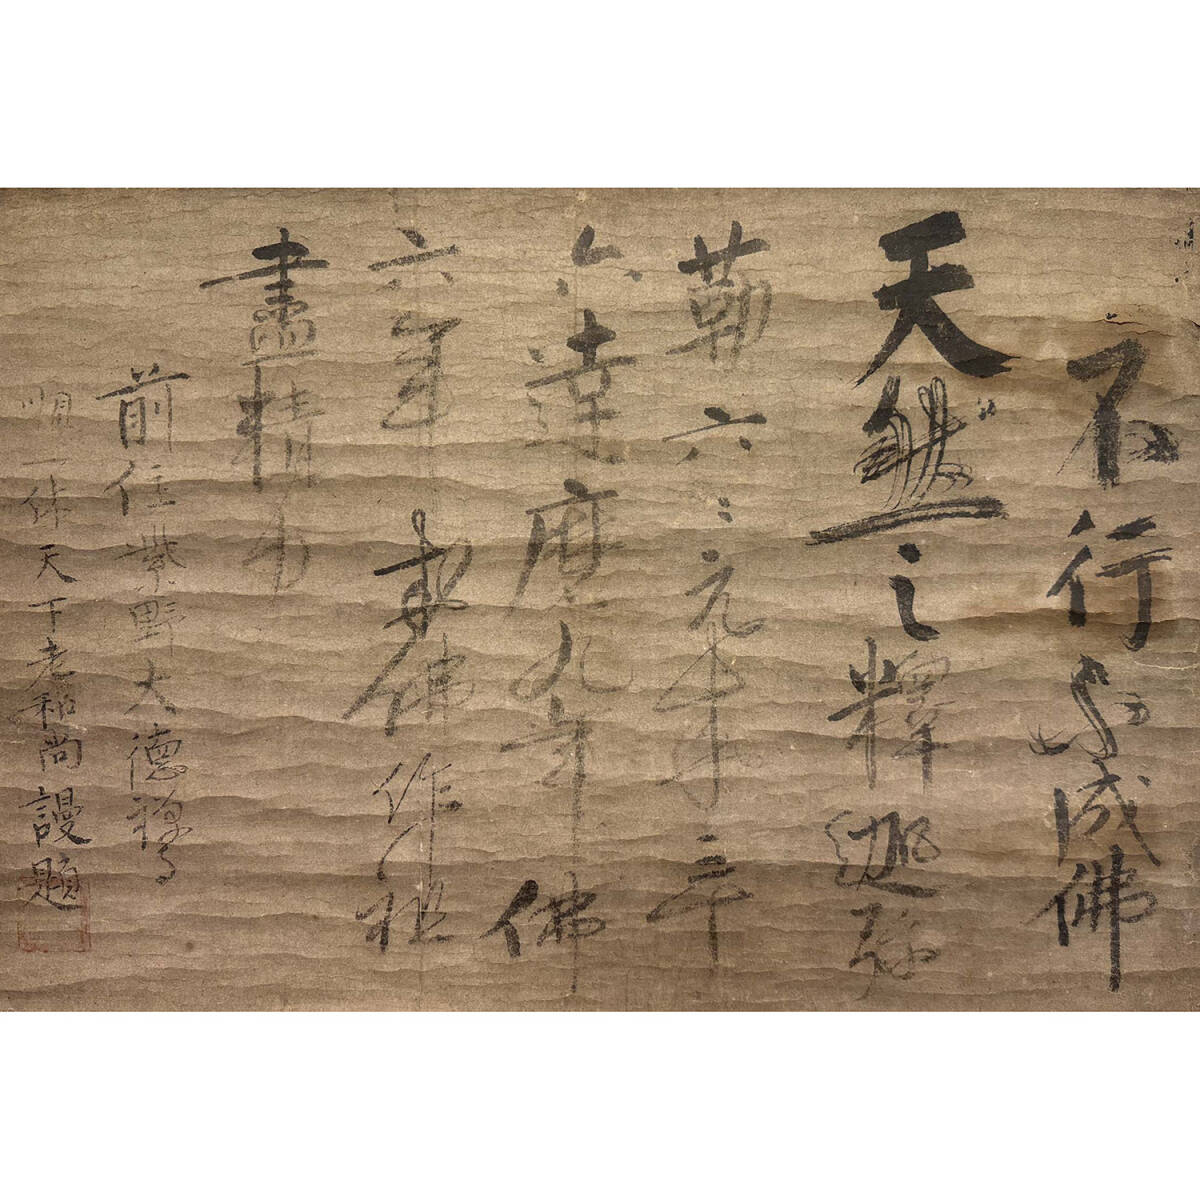 不行不成佛
天然之釋迦弥
勒六〻元来三
六達磨九年佛
六年 成佛作祖
盡精力
前住紫野大德禅寺
順一休天下老和尚謾題